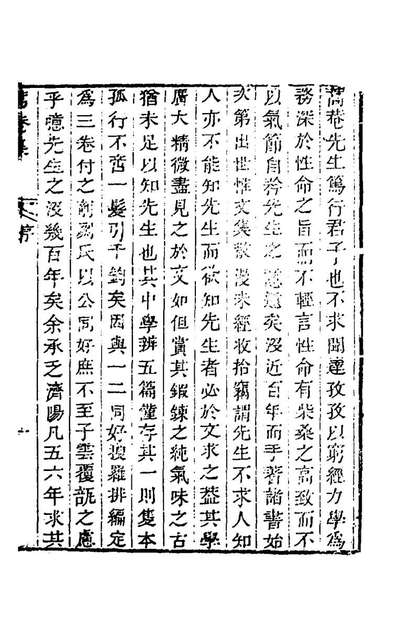 蒿菴先生篤行君子也不求聞達孜孜以窮經力學為
務深於性命之旨而不輕言性命有柴桑之高致而不
以氣節自矜先生之意遠矣沒近百年而手著諸書始
次第出世惟文集散漫未經收拾竊謂先生不求人知
人亦不能知先生而欲知先生者必於文求之葢其學
廣大精微盡見之於文如但賞其鍜鍊之純氣味之古
猶未足以知先生也其中學辨五篇僅存其一則隻本
孤行不啻一髮引千鈞矣因與一二同好搜羅排編定
為三卷付之剞劂氏以公同好庶不至子雲覆瓿之慮
乎噫先生之沒幾百年矣余承乏濟陽凡五六年求其
蒿菴集
序